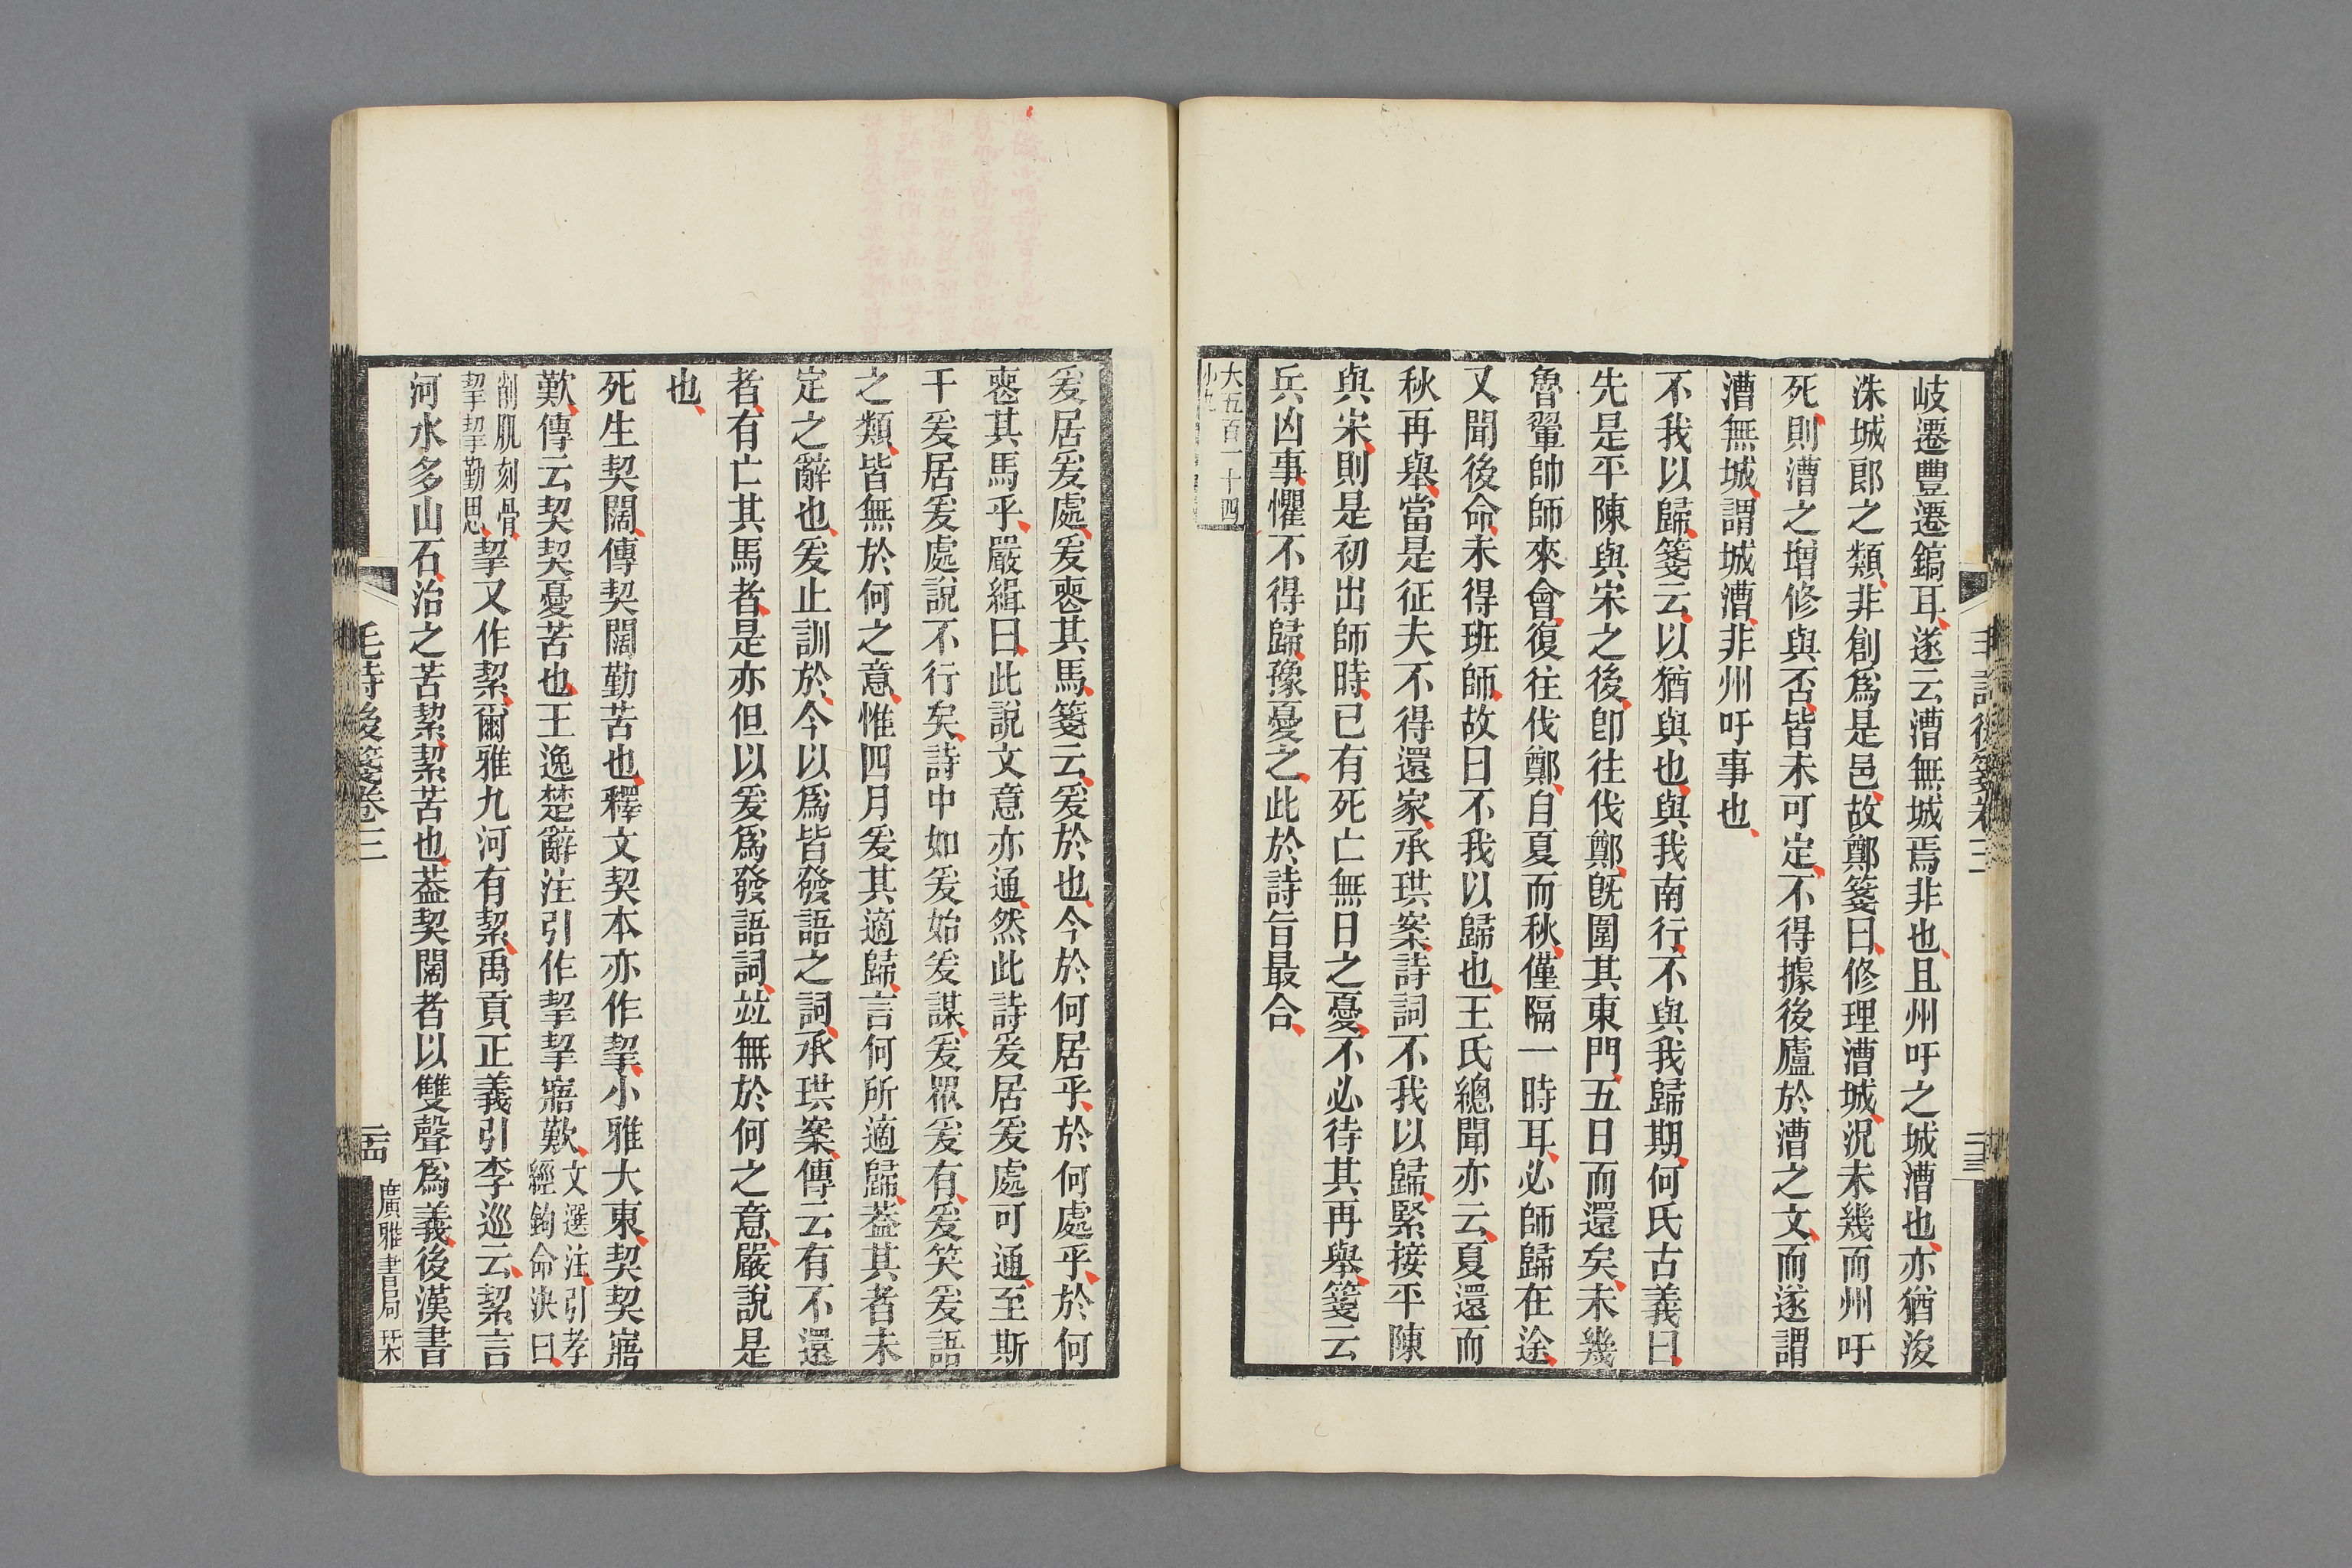 岐遷豐遷鎬耳遂云漕無城焉非也且州吁之城漕也亦猶浚
洙城郎之類非創為是邑故鄭箋曰修理漕城況未幾而州吁
死則漕之增修與否皆未可定不得據後廬於漕之文而遂謂
漕無城謂城漕非州吁事也
不我以歸箋云以猶與也與我南行不與我歸期何氏古義曰
先是平陳與宋之後卽往伐鄭旣圍其東門五日而還矣未幾
魯翬帥師來會復往伐鄭自夏而秋僅隔一時耳必師歸在途
又聞後命未得班師故曰不我以歸也王氏總聞亦云夏還而
秋再舉當是征夫不得還家承珙案詩詞不我以歸緊接平陳
與宋則是初出師時已有死亡無日之憂不必待其再舉箋云
兵凶事懼不得歸豫憂之此於詩旨最合
大五百一十四
毛詩後箋卷三
二十三
爰居爰處爰喪其馬箋云爰於也今於何居乎於何處乎於何
喪其馬乎嚴緝曰此說文意亦通然此詩爰居爰處可通至斯
干爰居爰處說不行矣詩中如爰始爰謀爰眾爰有爰笑爰語
之類皆無於何之意惟四月爰其適歸言何所適歸葢其者未
定之辭也爰止訓於今以為皆發語之詞承珙案傳云有不還
者有亡其馬者是亦但以爰為發語詞竝無於何之意嚴說是
也
死生契闊傳契闊勤苦也釋文契本亦作挈小雅大東契契寤
歎傳云契契憂苦也王逸楚辭注引作挈挈寤歎文選注引孝經鉤命決曰
削肌刻骨挈挈勤思挈又作絜爾雅九河有絜禹貢正義引李巡云絜言
河水多山石治之苦絜絜苦也葢契闊者以雙聲為義後漢書
毛詩後箋卷三
二十四
廣雅書局栞